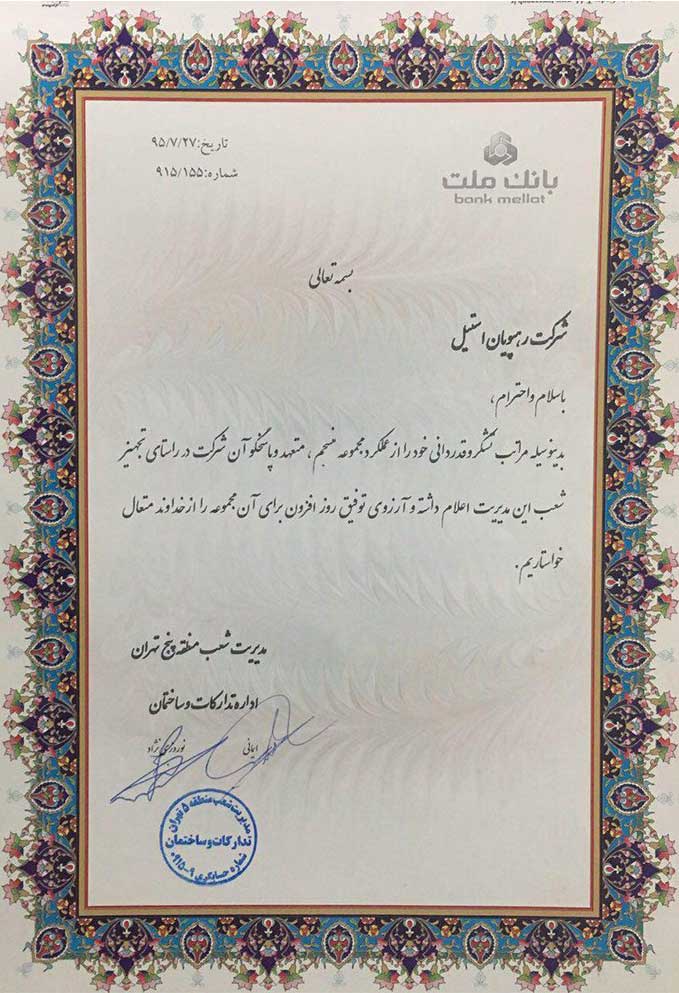 تاریخ: ۹۵/۷/۲۷
شماره: ۹۱۵/۱۵۵
بانک ملت
bank mellat
بسمه تعالی
شرکت رهپویان استیل
باسلام و احترام ،
بدینوسیله مراتب تشکر و قدردانی خود را از عملکرد مجموعه منسجم ، متعهد و پاسخگو آن شرکت در راستای تجهیز
شعب این مدیریت اعلام داشته و آرزوی توفیق روز افزون برای آن مجموعه را از خداوند متعال
خواستاریم .
مدیریت شعب منطقه پنج تهران
اداره تدارکات و ساختمان
مدیریت شعب منطقه ۵ تهران
تدارکات و ساختمان